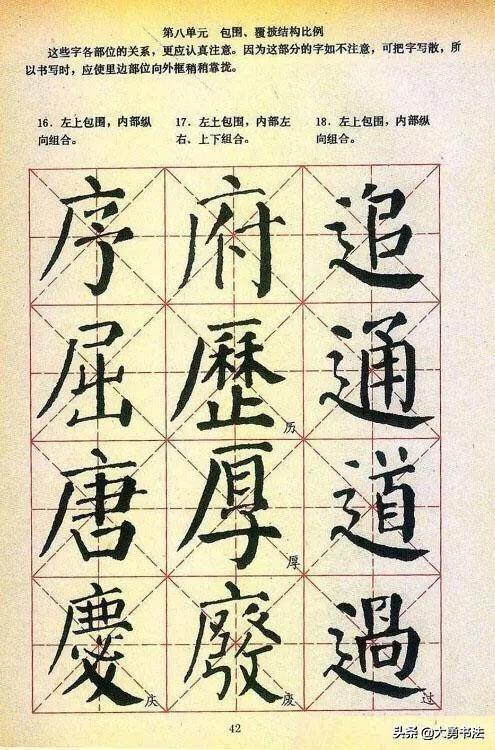 第八单元 包围、覆披结构比例
这些字各部位的关系，更应认真注意。因为这部分的字如不注意，可把字写散，所
以书写时，应使里边部位向外框稍稍靠拢。
16. 左上包围，内部纵
向组合。
17. 左上包围，内部左
右、上下组合。
18. 左上包围，内部纵
向组合。
序 府 追
屈 歷 历 通
唐 厚 厚 道
慶 庆 廢 废 過 过
42
头条 @大勇书法